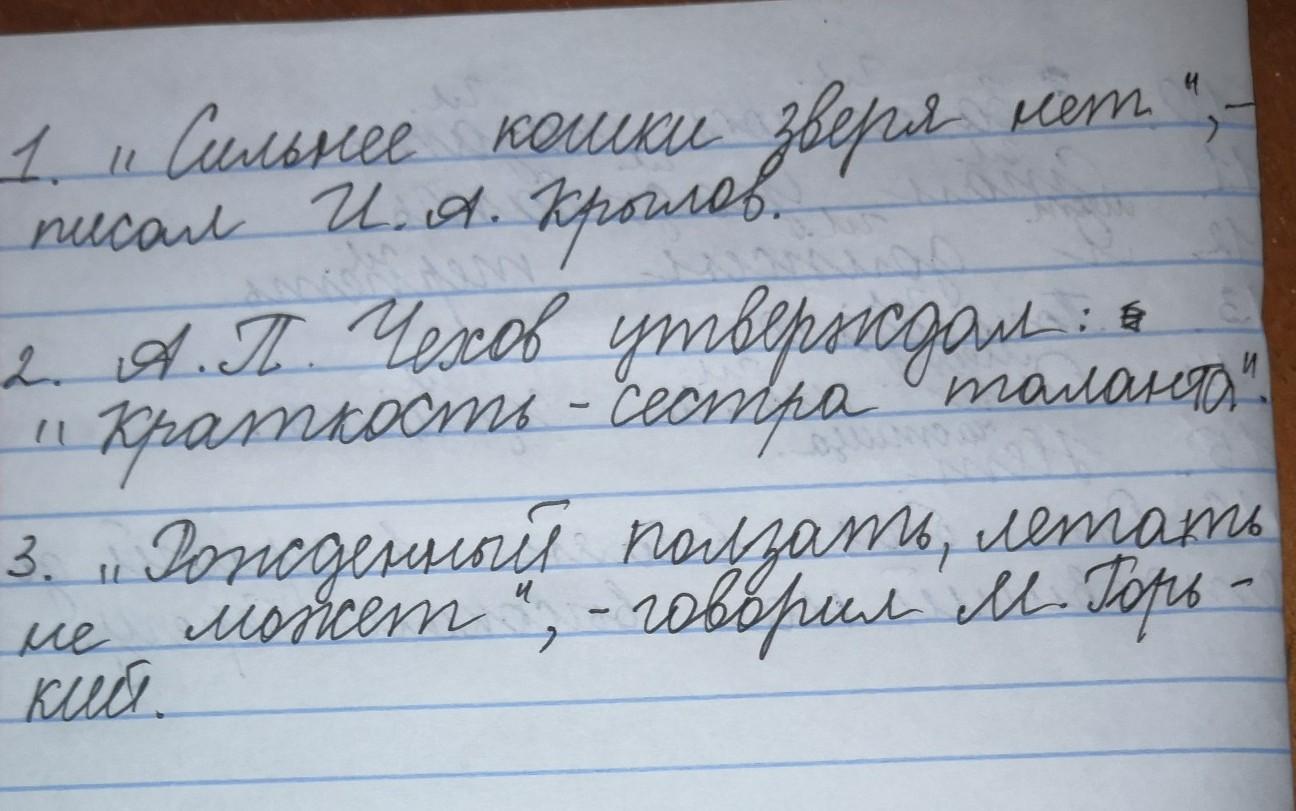 1. „Сильнее кошки зверя нет", -
писал И. А. Крылов.
2. А. П. Чехов утверждал:
„Краткость - сестра таланта".
3. „Рожденный ползать, летать
не может", - говорил М. Горь-
кий.